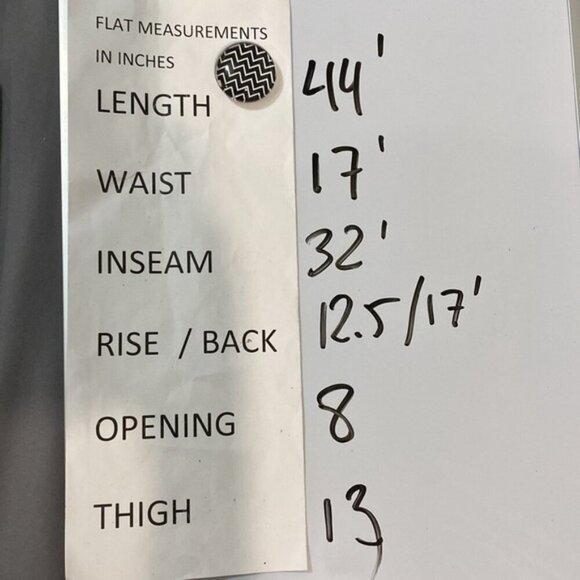 FLAT MEASUREMENTS
IN INCHES
LENGTH 44'
WAIST 17'
INSEAM 32'
RISE / BACK 12.5/17'
OPENING 8
THIGH 13